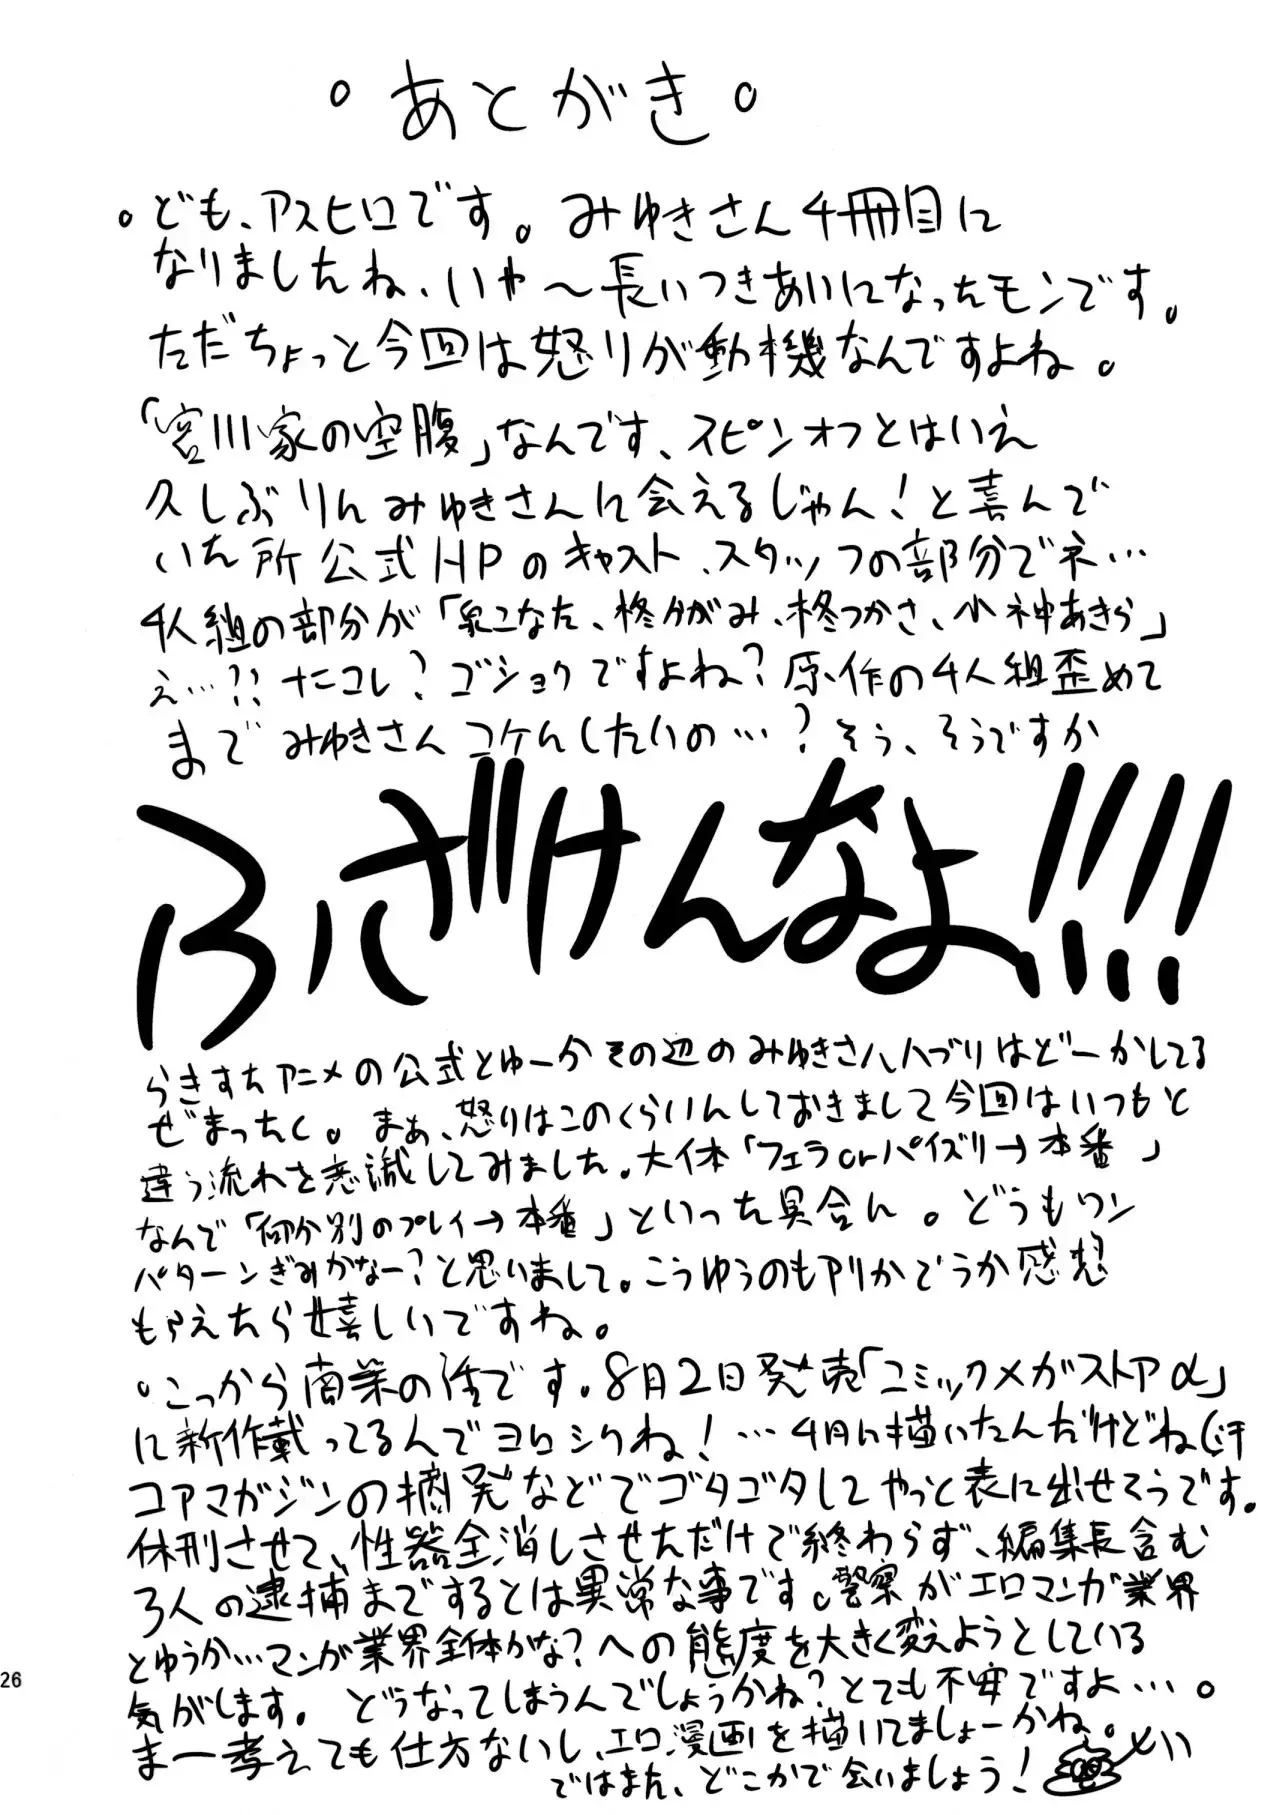 。あとがき。
。ども、アスヒロです。みゆきさん4冊目に
なりましたね、いや〜長いつきあいになったモンです。
ただちょっと今回は怒りが動機なんですよね。
「宮川家の空腹」なんです、スピンオフとはいえ
久しぶりにみゆきさんに会えるじゃん!と喜んで
いた所公式HPのキャスト、スタッフの部分でネ…
4人組の部分が「泉こなた、柊かがみ、柊つかさ、小神あきら」
え…?? ナニコレ? ゴショクですよね? 原作の4人組歪めて
までみゆきさんコケにしたいの…? そう、そうですか
ふざけんなよ!!!!
らきすたアニメの公式とゆーかその辺のみゆきさんハブリはどーかしてる
ぜまったく。まぁ、怒りはこのくらいにしておきまして今回はいつもと
違う流れを意識してみました。大体「フェラorパイズリ→本番」
なんで「何か別のプレイ→本番」といった具合に。どうもワン
パターンぎみかなー?と思いまして。こうゆうのもアリかどうか感想
もらえたら嬉しいですね。
。こっから商業の話です。8月2日発売「コミックメガストアα」
に新作載ってるんでヨロシクね!…4月に描いたんだけどね(汗
コアマガジンの摘発などでゴタゴタしてやっと表に出せそうです。
休刊させて、性器全消しさせただけで終わらず、編集長含む
3人の逮捕までするとは異常な事です。警察がエロマンガ業界
とゆうか…マンガ業界全体かな?への態度を大きく変えようとしている
気がします。どうなってしまうんでしょうかね?とても不安ですよ…。
まー考えても仕方ないし、エロ漫画を描いてましょーかね。
ではまた、どこかで会いましょう!
26